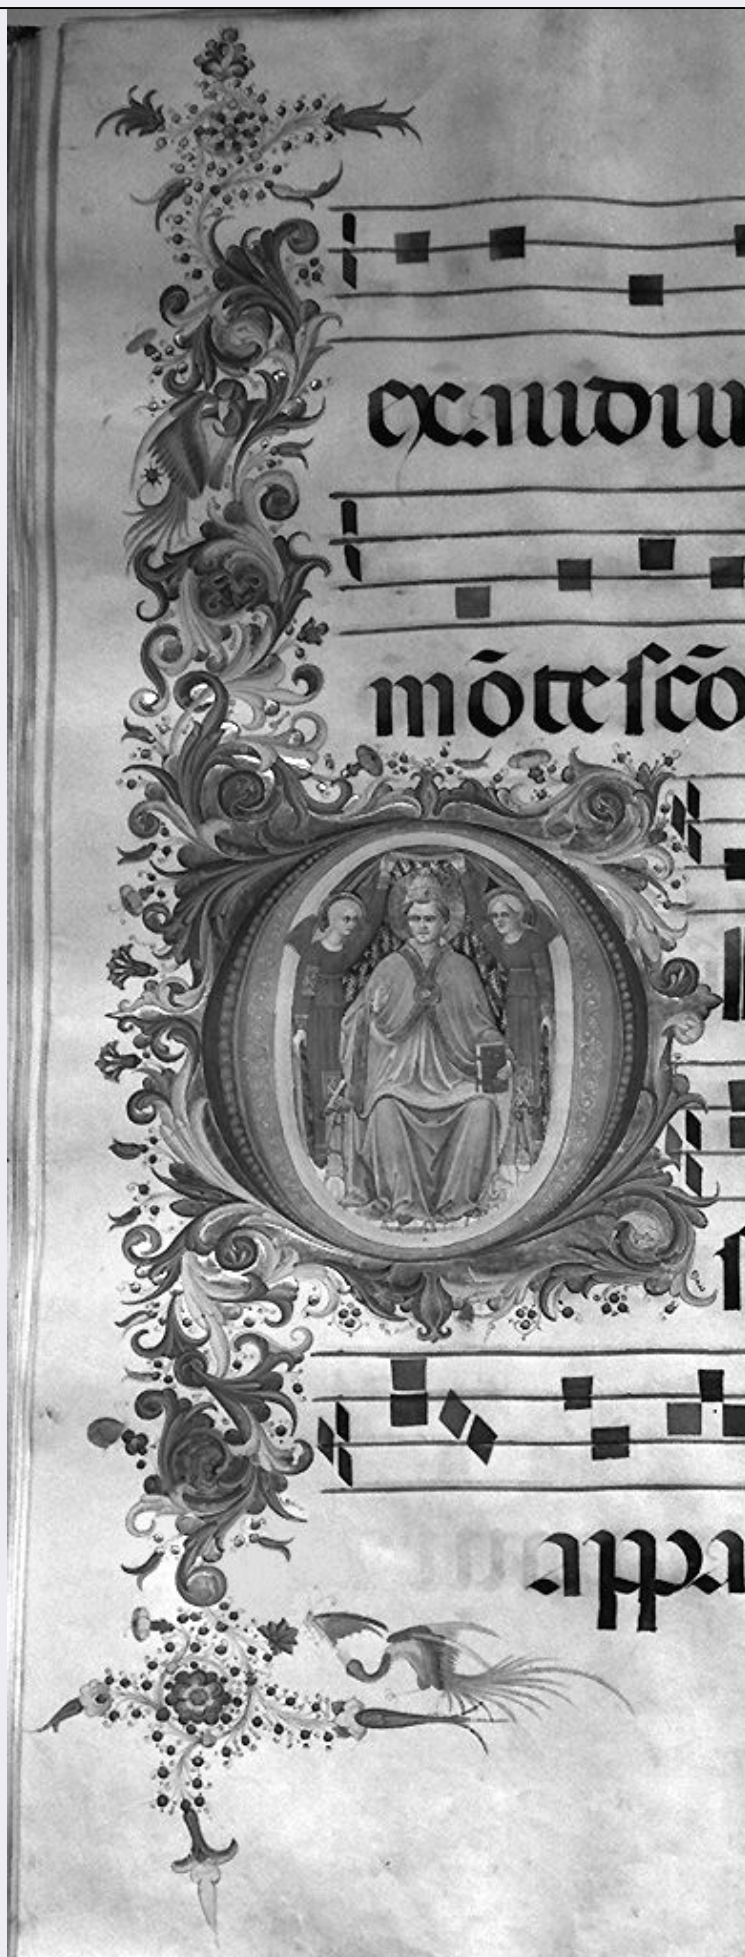 exaudiu
mōte scō
O
s
appa